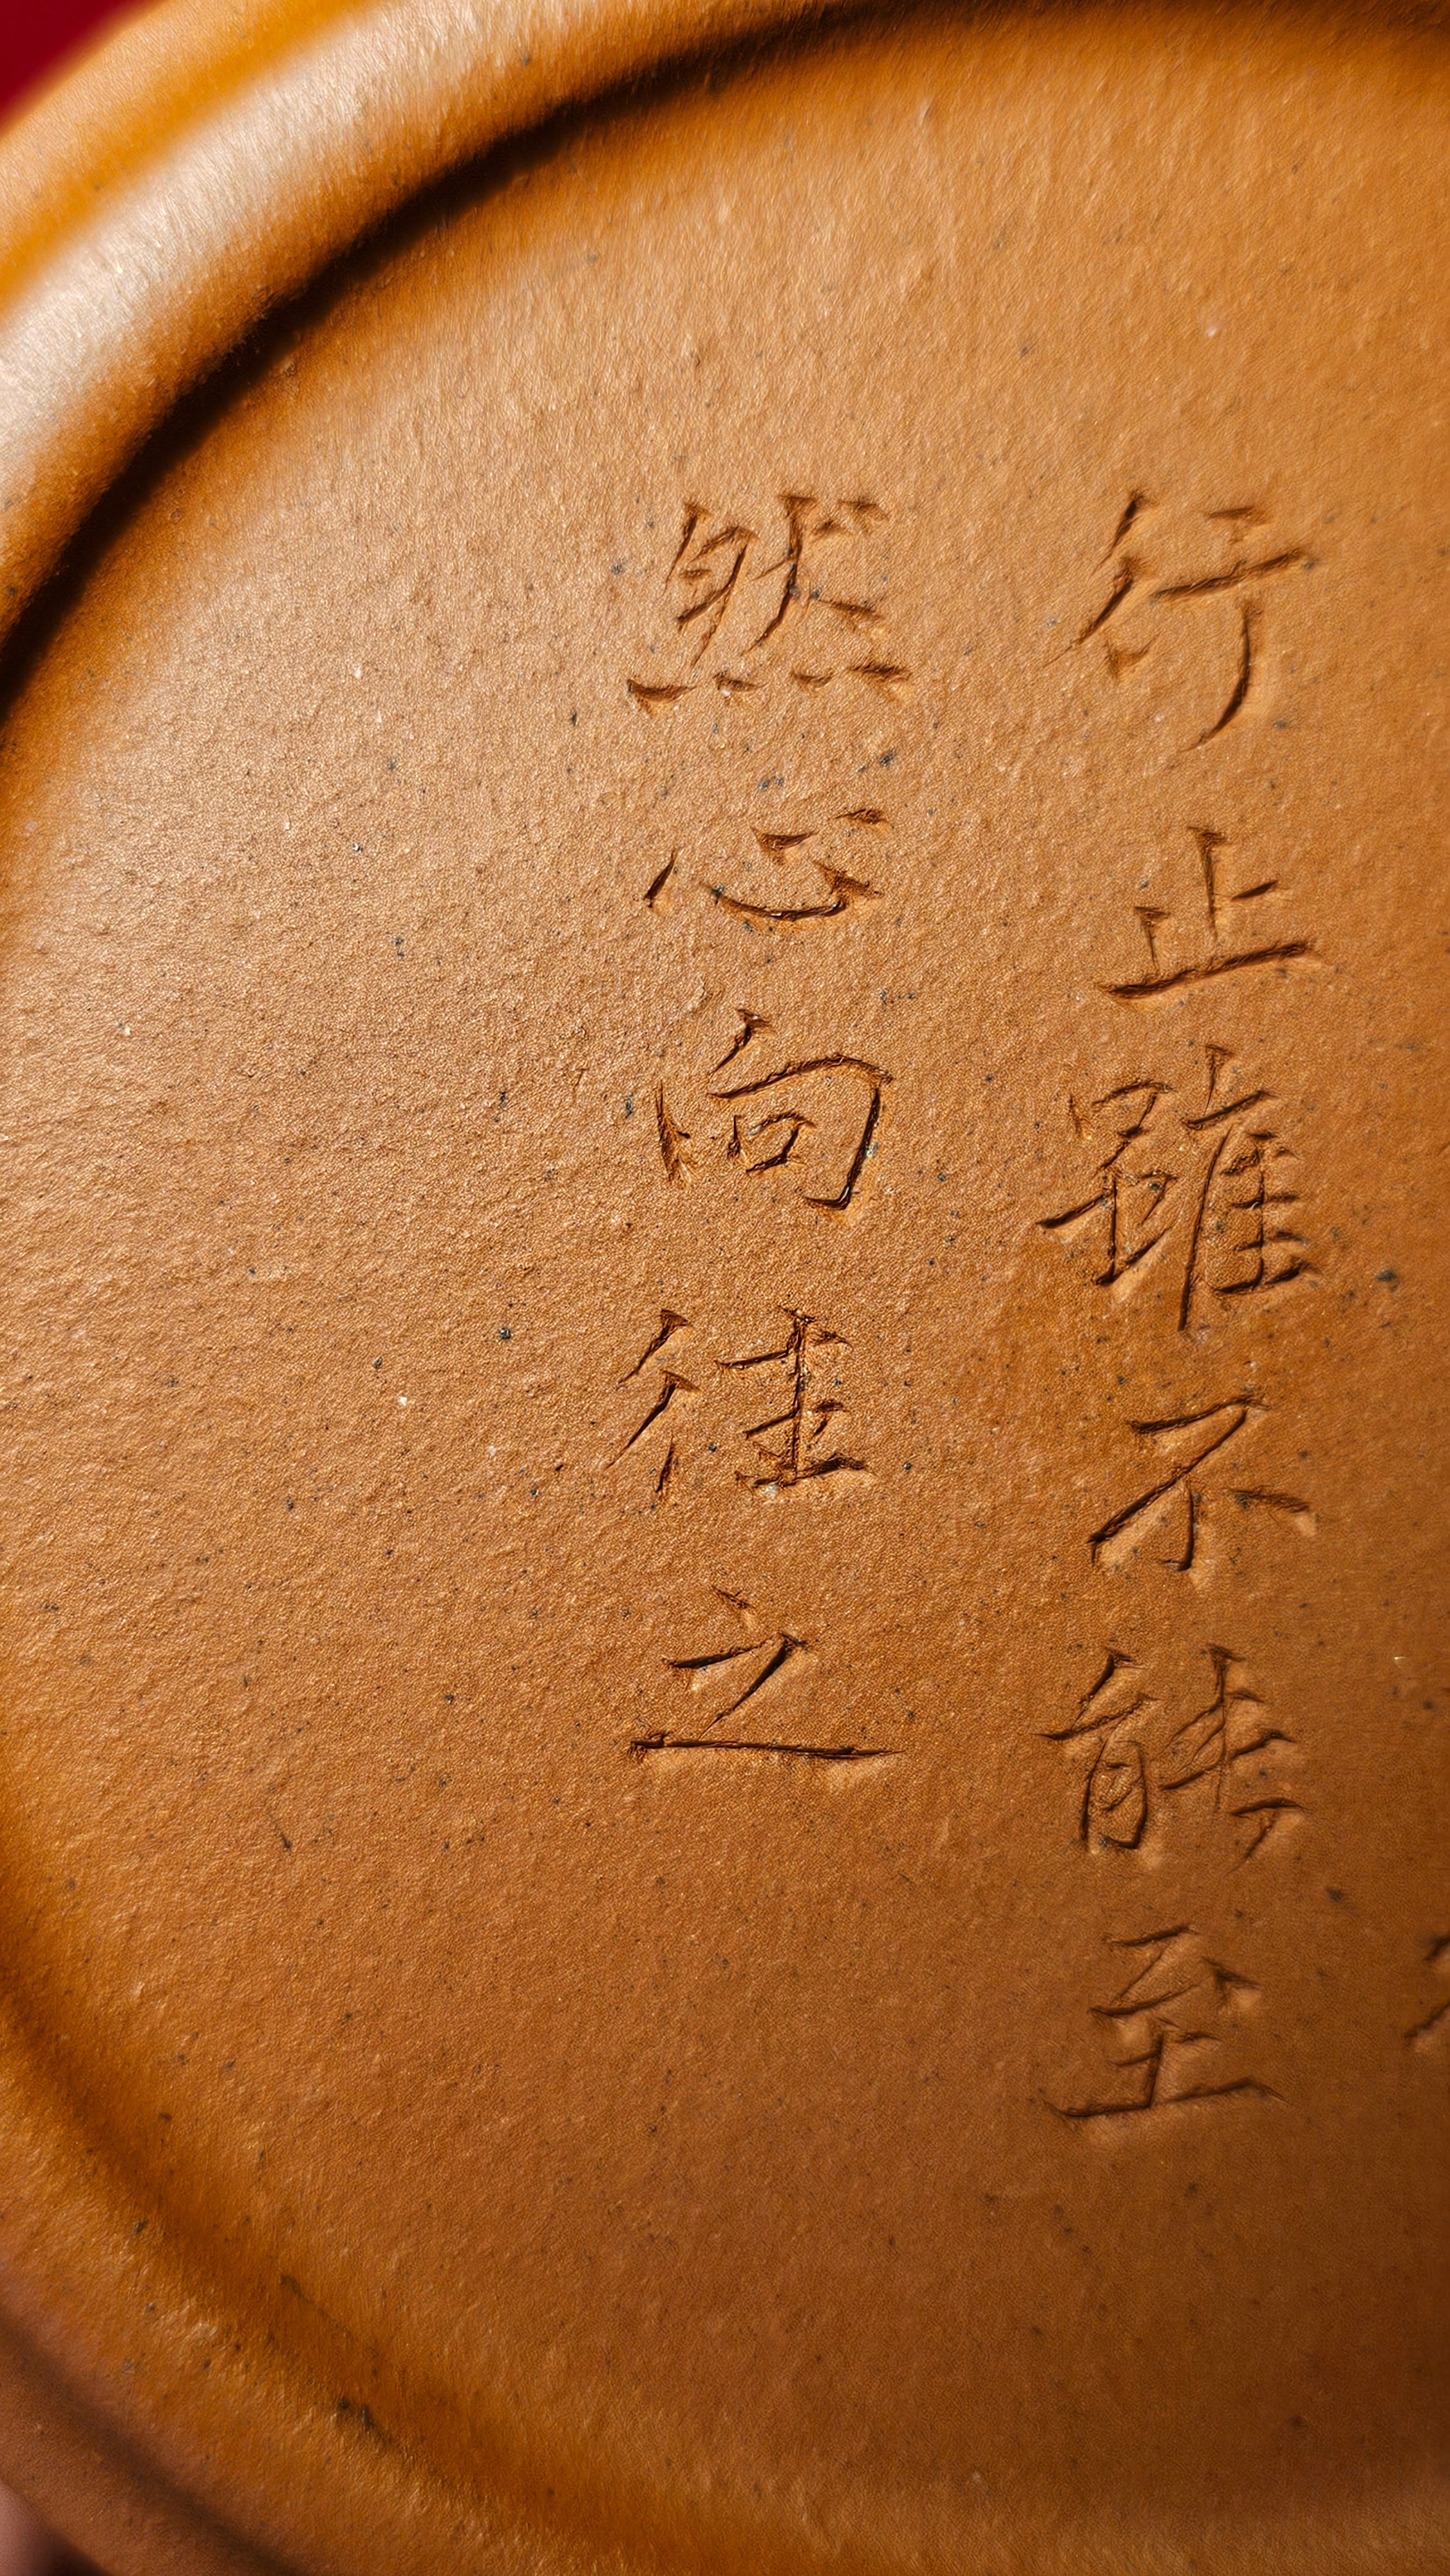 行止雖不能至
然心向往之